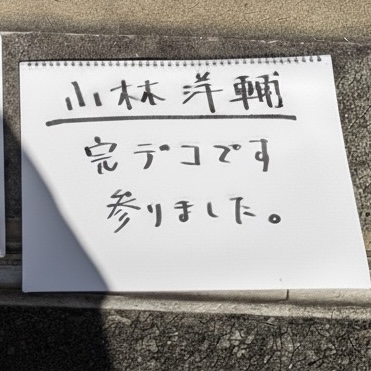 小林洋輔
完デコです
参りました。